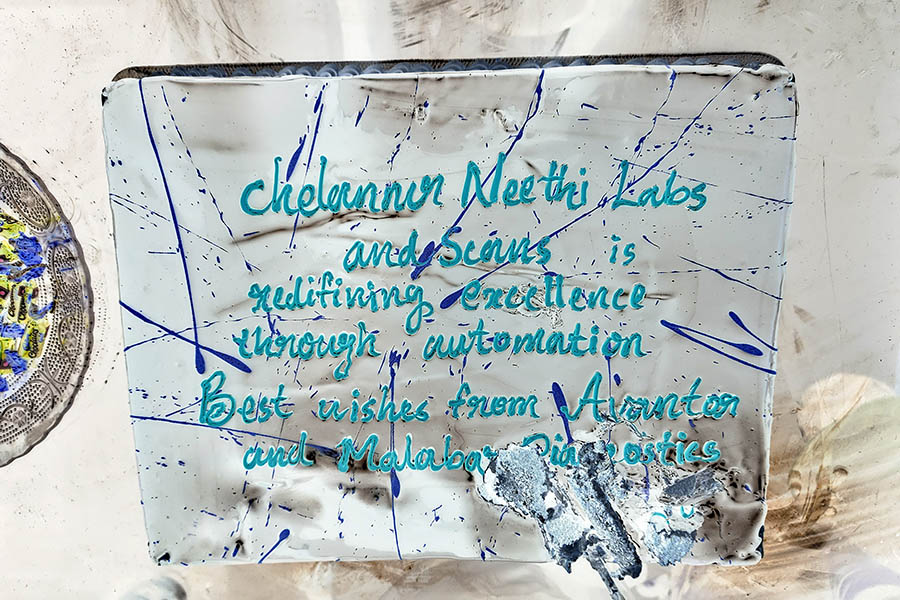 Chelannur Neethi Labs
and Scans is
redifining excellence
through automation
Best wishes from Avantor
and Malabar Diagnostics